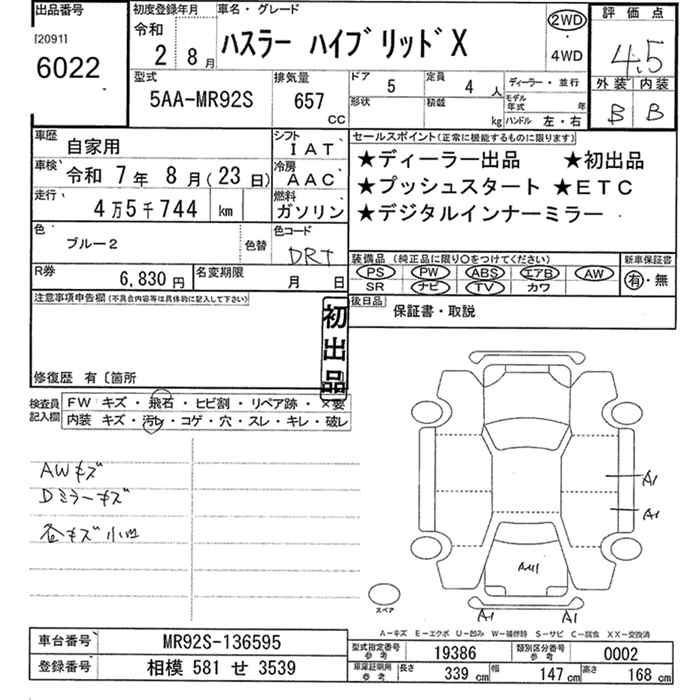 出品番号
[2091]
6022
初度登録年月
令和
2 8月
車名・グレード
ハスラー ハイブリッドX
2WD
・
4WD
評価点
4.5
外装 内装
B B
型式
5AA-MR92S
排気量
657
CC
ドア
5
定員
4 人
形状
積載
kg
ディーラー・並行
モデル年式 年
ハンドル 左・右
車歴
自家用
シフト
IAT
車検
令和 7年 8月(23日)
冷房
AAC
走行
4万5千744 km
燃料
ガソリン
色
ブルー2
色替
色コード
R券
6,830円
名変期限
月 日
セールスポイント(正常に機能するものに限ります)
★ディーラー出品 ★初出品
★プッシュスタート ★ETC
★デジタルインナーミラー
装備品 (純正品に限り○をつけてください)
PS PW ABS エアB AW
SR ナビ TV カワ
新車保証書
有・無
後日品
保証書・取説
注意事項申告欄(不具合内容等は具体的に記入して下さい)
初出品
修復歴 有〔箇所
検査員
記入欄
FW キズ・飛石・ヒビ割・リペア跡・×要
内装 キズ・汚レ・コゲ・穴・スレ・キレ・破レ
AWキズ
Dミラーキズ
各キズ小凹
A1
A1
A1 A1
スペア
A-キズ E-エクボ U-凹み W-補修跡 S-サビ C-腐食 XX-交換済
車台番号
MR92S-136595
登録番号
相模 581 せ 3539
型式指定番号
参考
19386
類別区分番号
参考
0002
車庫証明用
参考
長さ
339 cm
幅
147 cm
高さ
168 cm